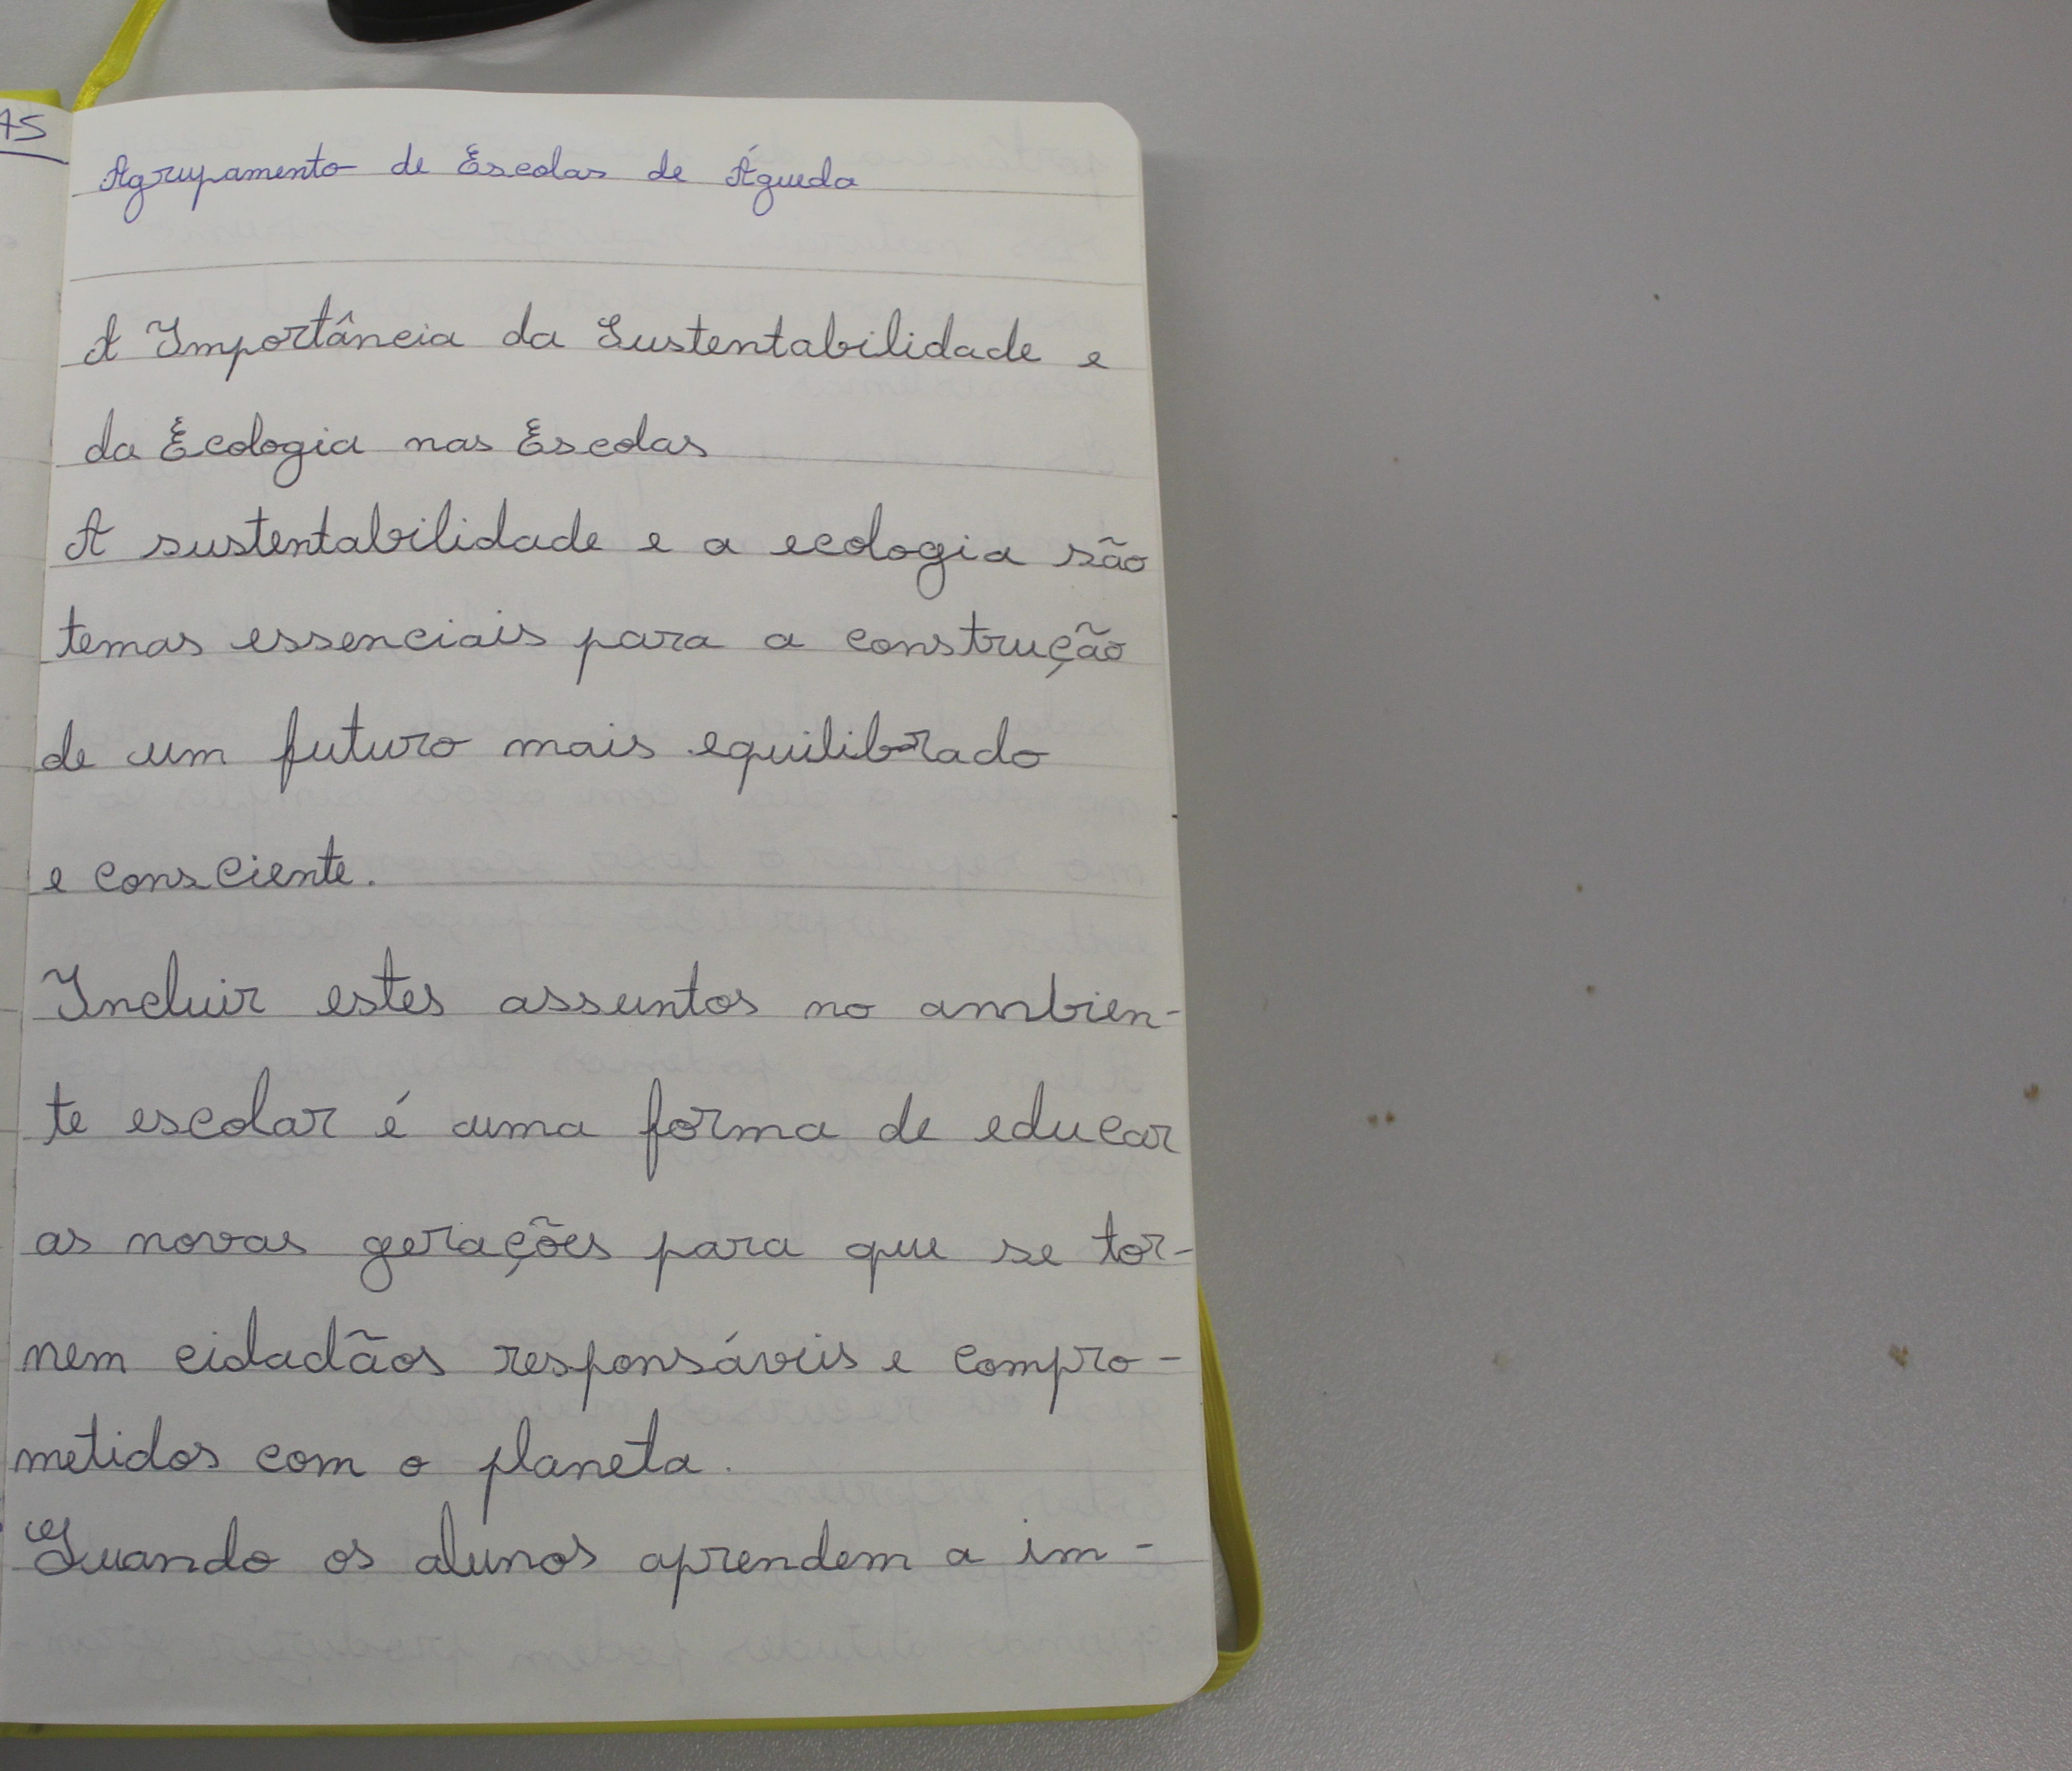 Agrupamento de Escolas de Águeda
A Importância da Sustentabilidade e
da Ecologia nas Escolas
A sustentabilidade e a ecologia são
temas essenciais para a construção
de um futuro mais equilibrado
e consciente.
Incluir estes assuntos no ambien-
te escolar é uma forma de educar
as novas gerações para que se tor-
nem cidadãos responsáveis e compro-
metidos com o planeta.
Quando os alunos aprendem a im-